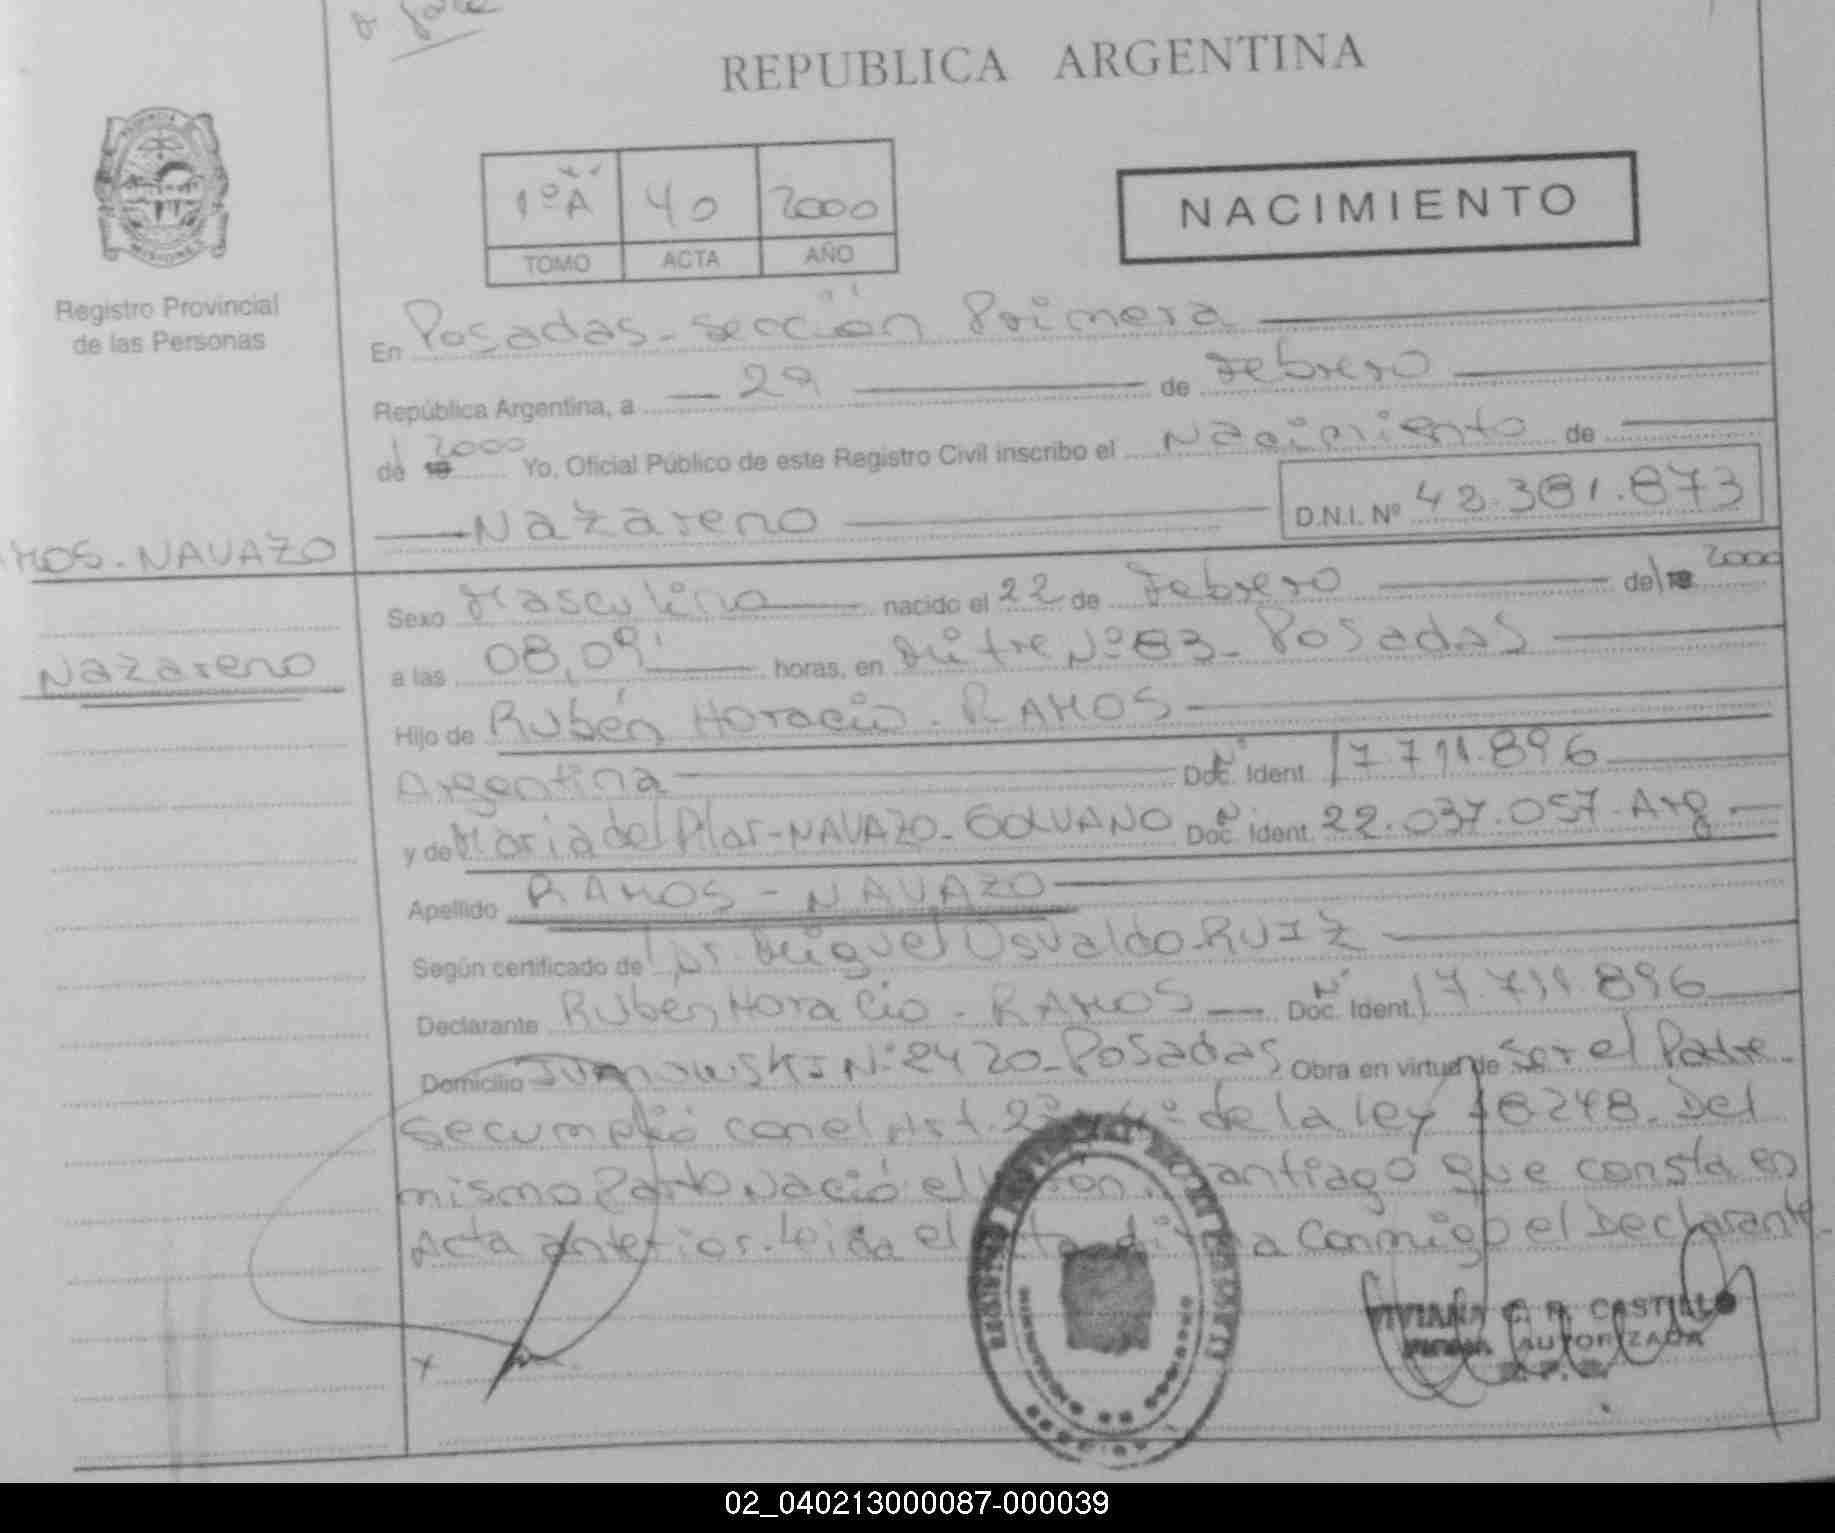 REPUBLICA ARGENTINA
1º A 40 2000
TOMO ACTA AÑO
NACIMIENTO
Registro Provincial
de las Personas
En Posadas - Sección Primera
República Argentina, a 29 de Febrero
de 2000 Yo, Oficial Público de este Registro Civil inscribo el Nacimiento de
Nazareno D.N.I. Nº 42.381.873
MOS - NAVAZO
Nazareno
Sexo Masculino nacido el 22 de Febrero del 2000
a las 08,09' horas, en Mitre Nº 83 - Posadas
Hijo de Rubén Horacio - RAMOS
Argentina Doc. Ident. Nº 17.711.896
y de María del Pilar - NAVAZO - GALVANO Doc. Ident. Nº 22.037.057 - Arg
Apellido RAMOS - NAVAZO
Según certificado de Dr. Miguel Osvaldo RUIZ
Declarante Rubén Horacio - RAMOS Doc. Ident. Nº 17.711.896
Domicilio Nº 2420 - Posadas Obra en virtud de Ser el Padre -
se cumplió con el Art. 2º 4º de la ley 18248 - Del
mismo Parto Nació el Santiago que consta en
Acta anterior. Leída el Acta conmigo el Declarante
VIVIANA C. R. CASTILLO
AUTORIZADA
02_040213000087-000039